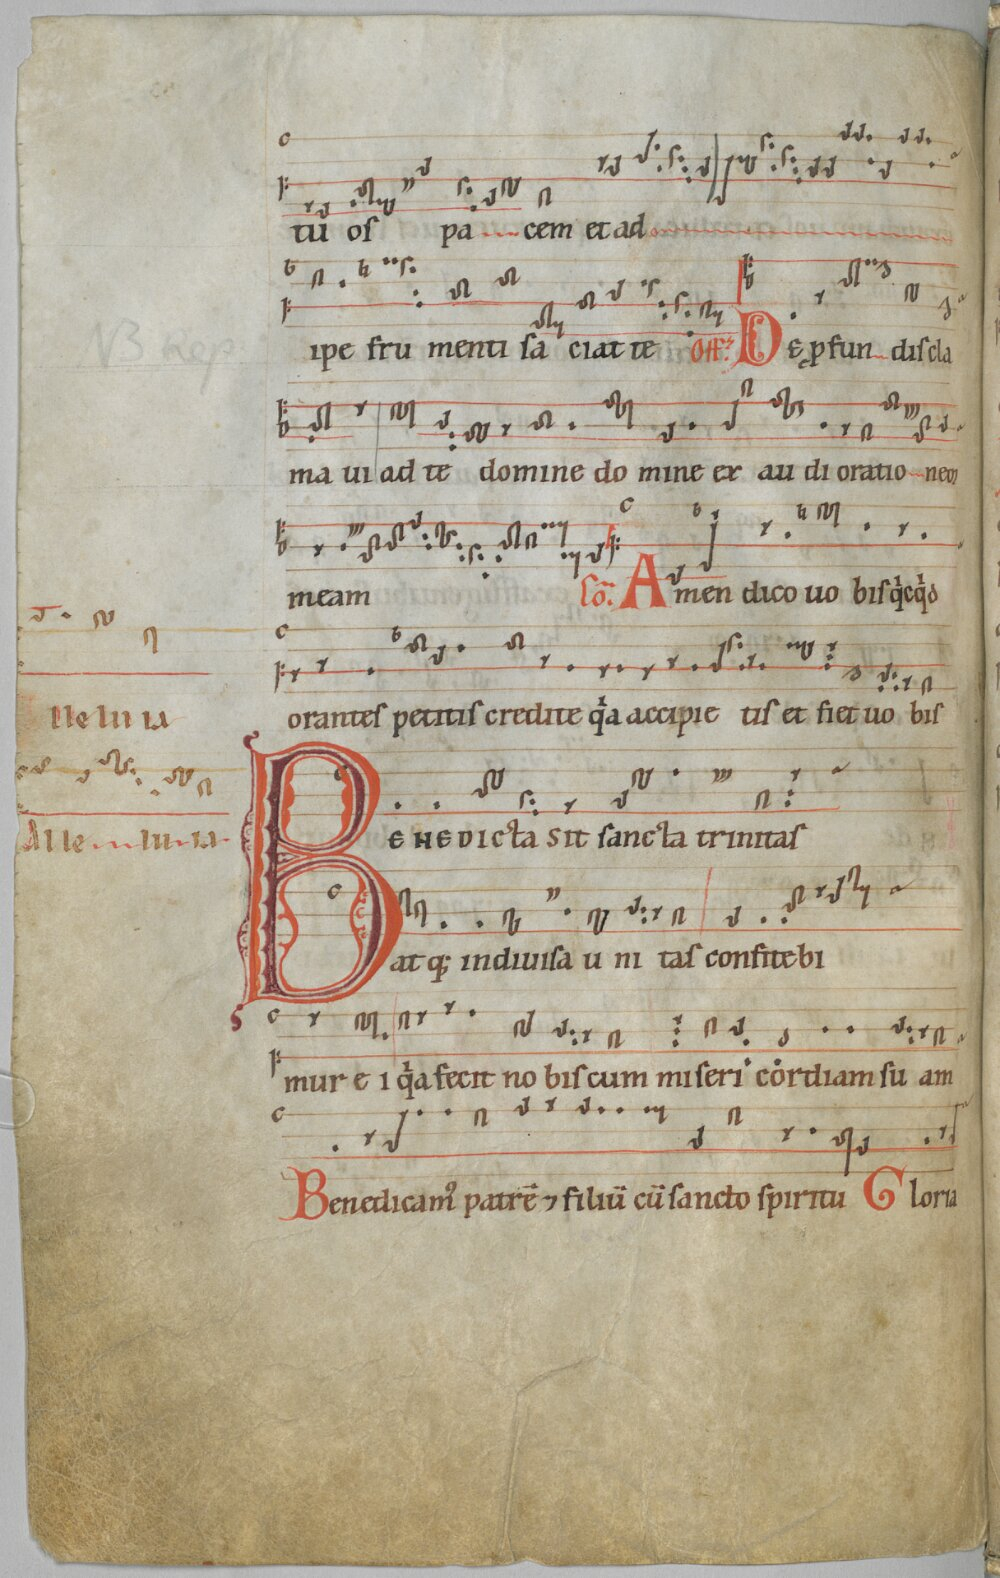 tuos pa cem et ad
ipe frumenti sa ciat te Off. De ꝓfun dis cla
ma vi ad te domine do mine ex au di oratio nem
meam Cō. Amen dico uo bis qͥcqͥd
orantes petitis credite qͥa accipie tis et fiet uo bis
lle lu ia
BENEDICTA SIT sancta trinitas
Alle lu ia
atq; indiuisa u ni tas confitebi
mur e i qͥa fecit no bis cum miseri cordiam su am
Benedicam᷒ patrē ⁊ filiū cū sancto spiritu Gloria